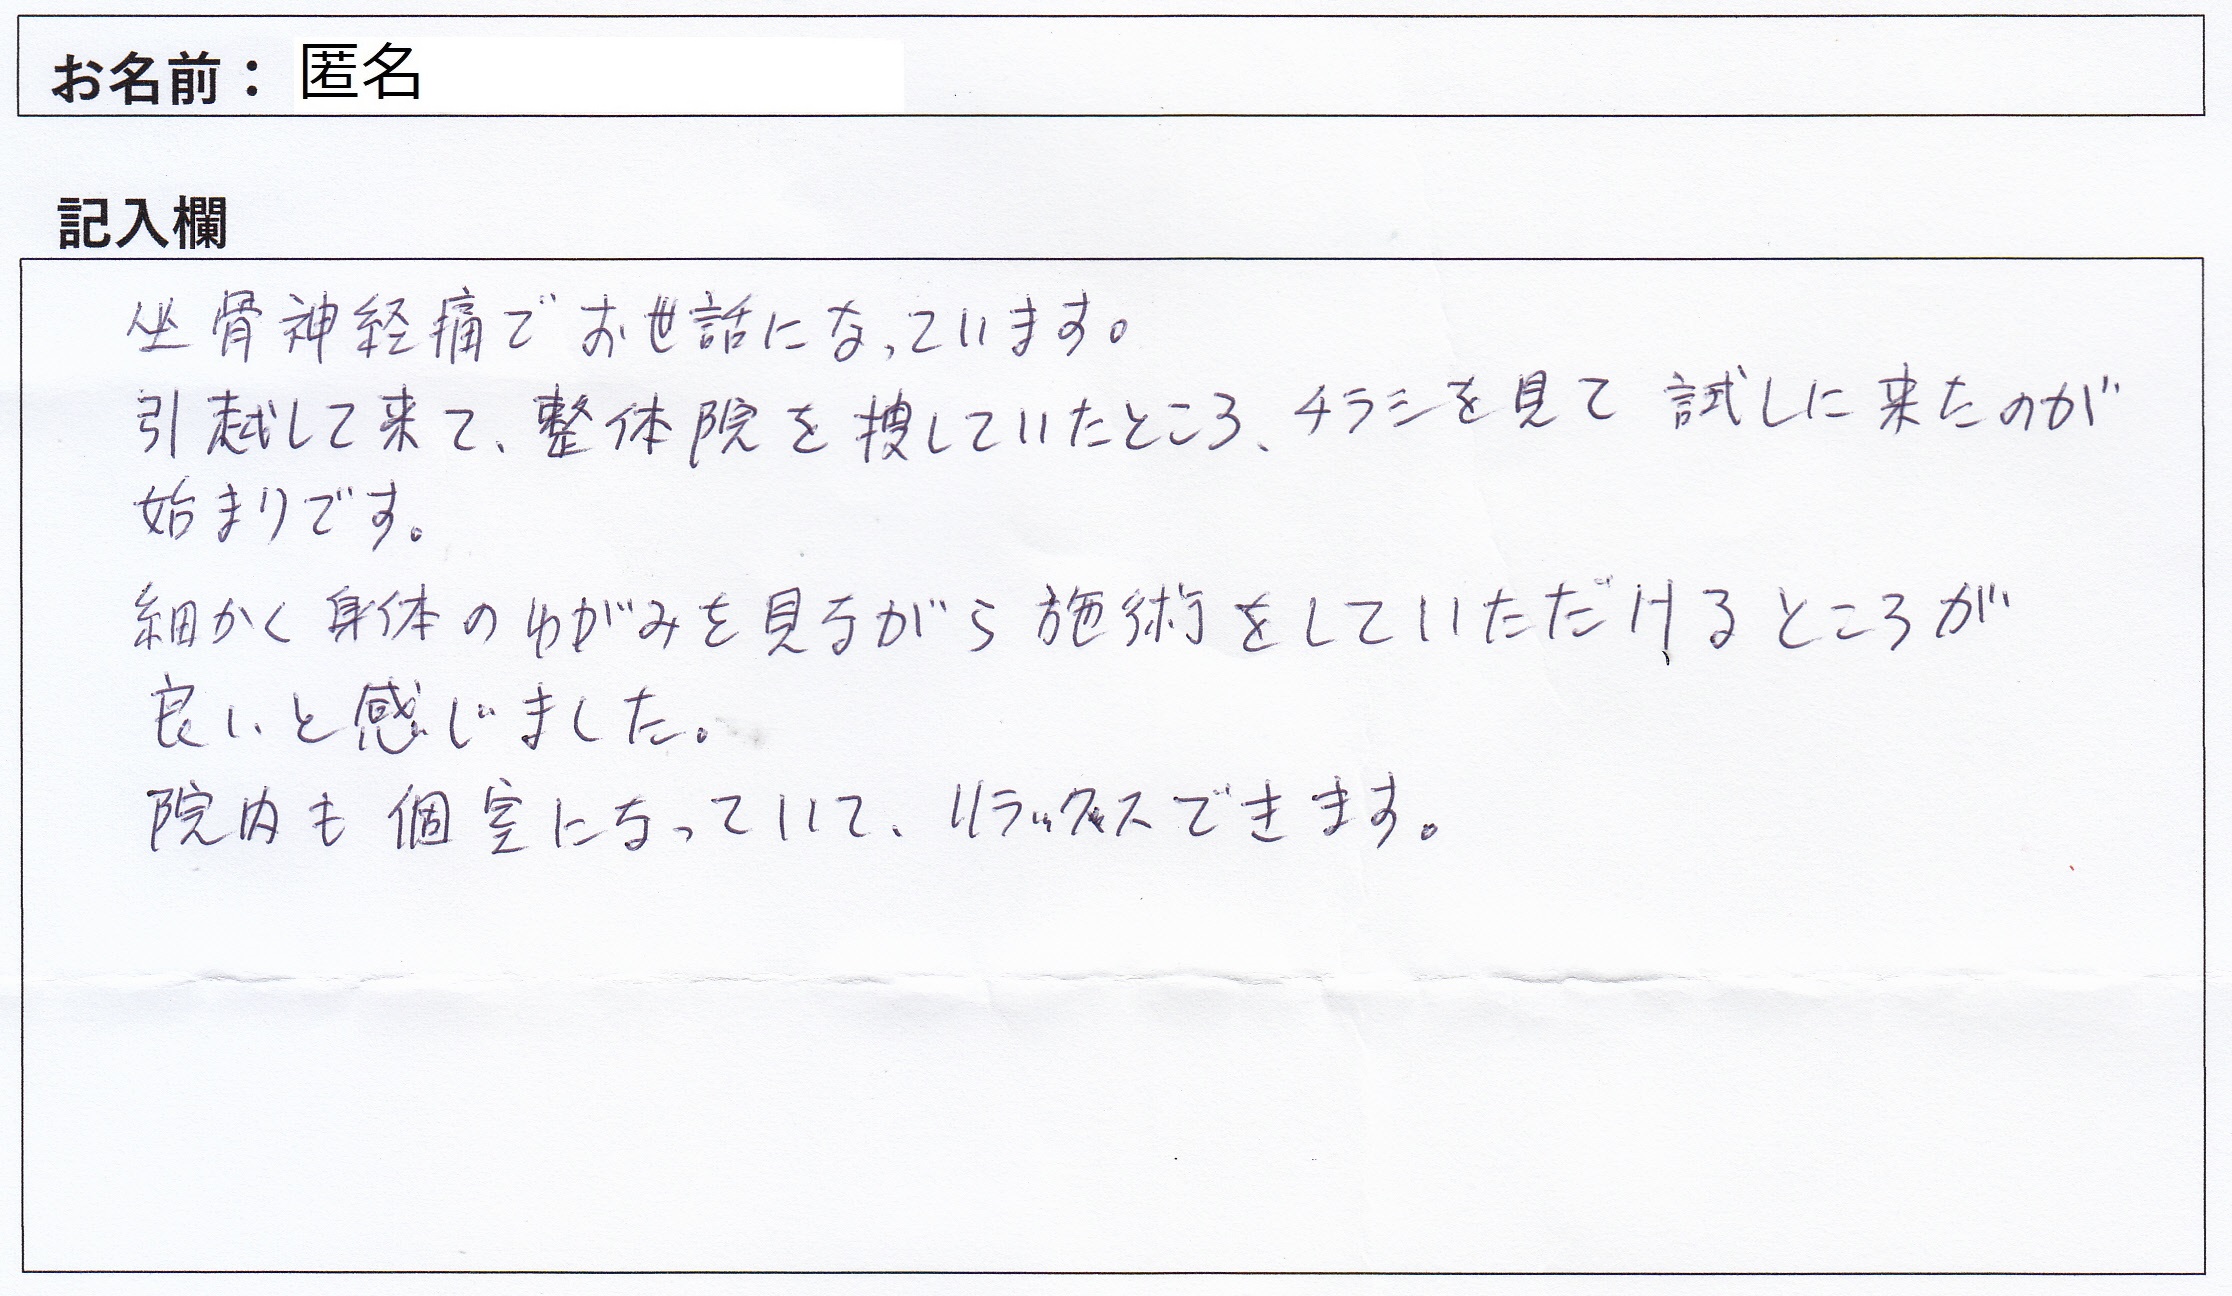 お名前： 匿名
記入欄
坐骨神経痛でお世話になっています。
引越して来て、整体院を捜していたところ、チラシを見て試しに来たのが
始まりです。
細かく身体のゆがみを見ながら施術をしていただけるところが
良いと感じました。
院内も個室になっていて、リラックスできます。